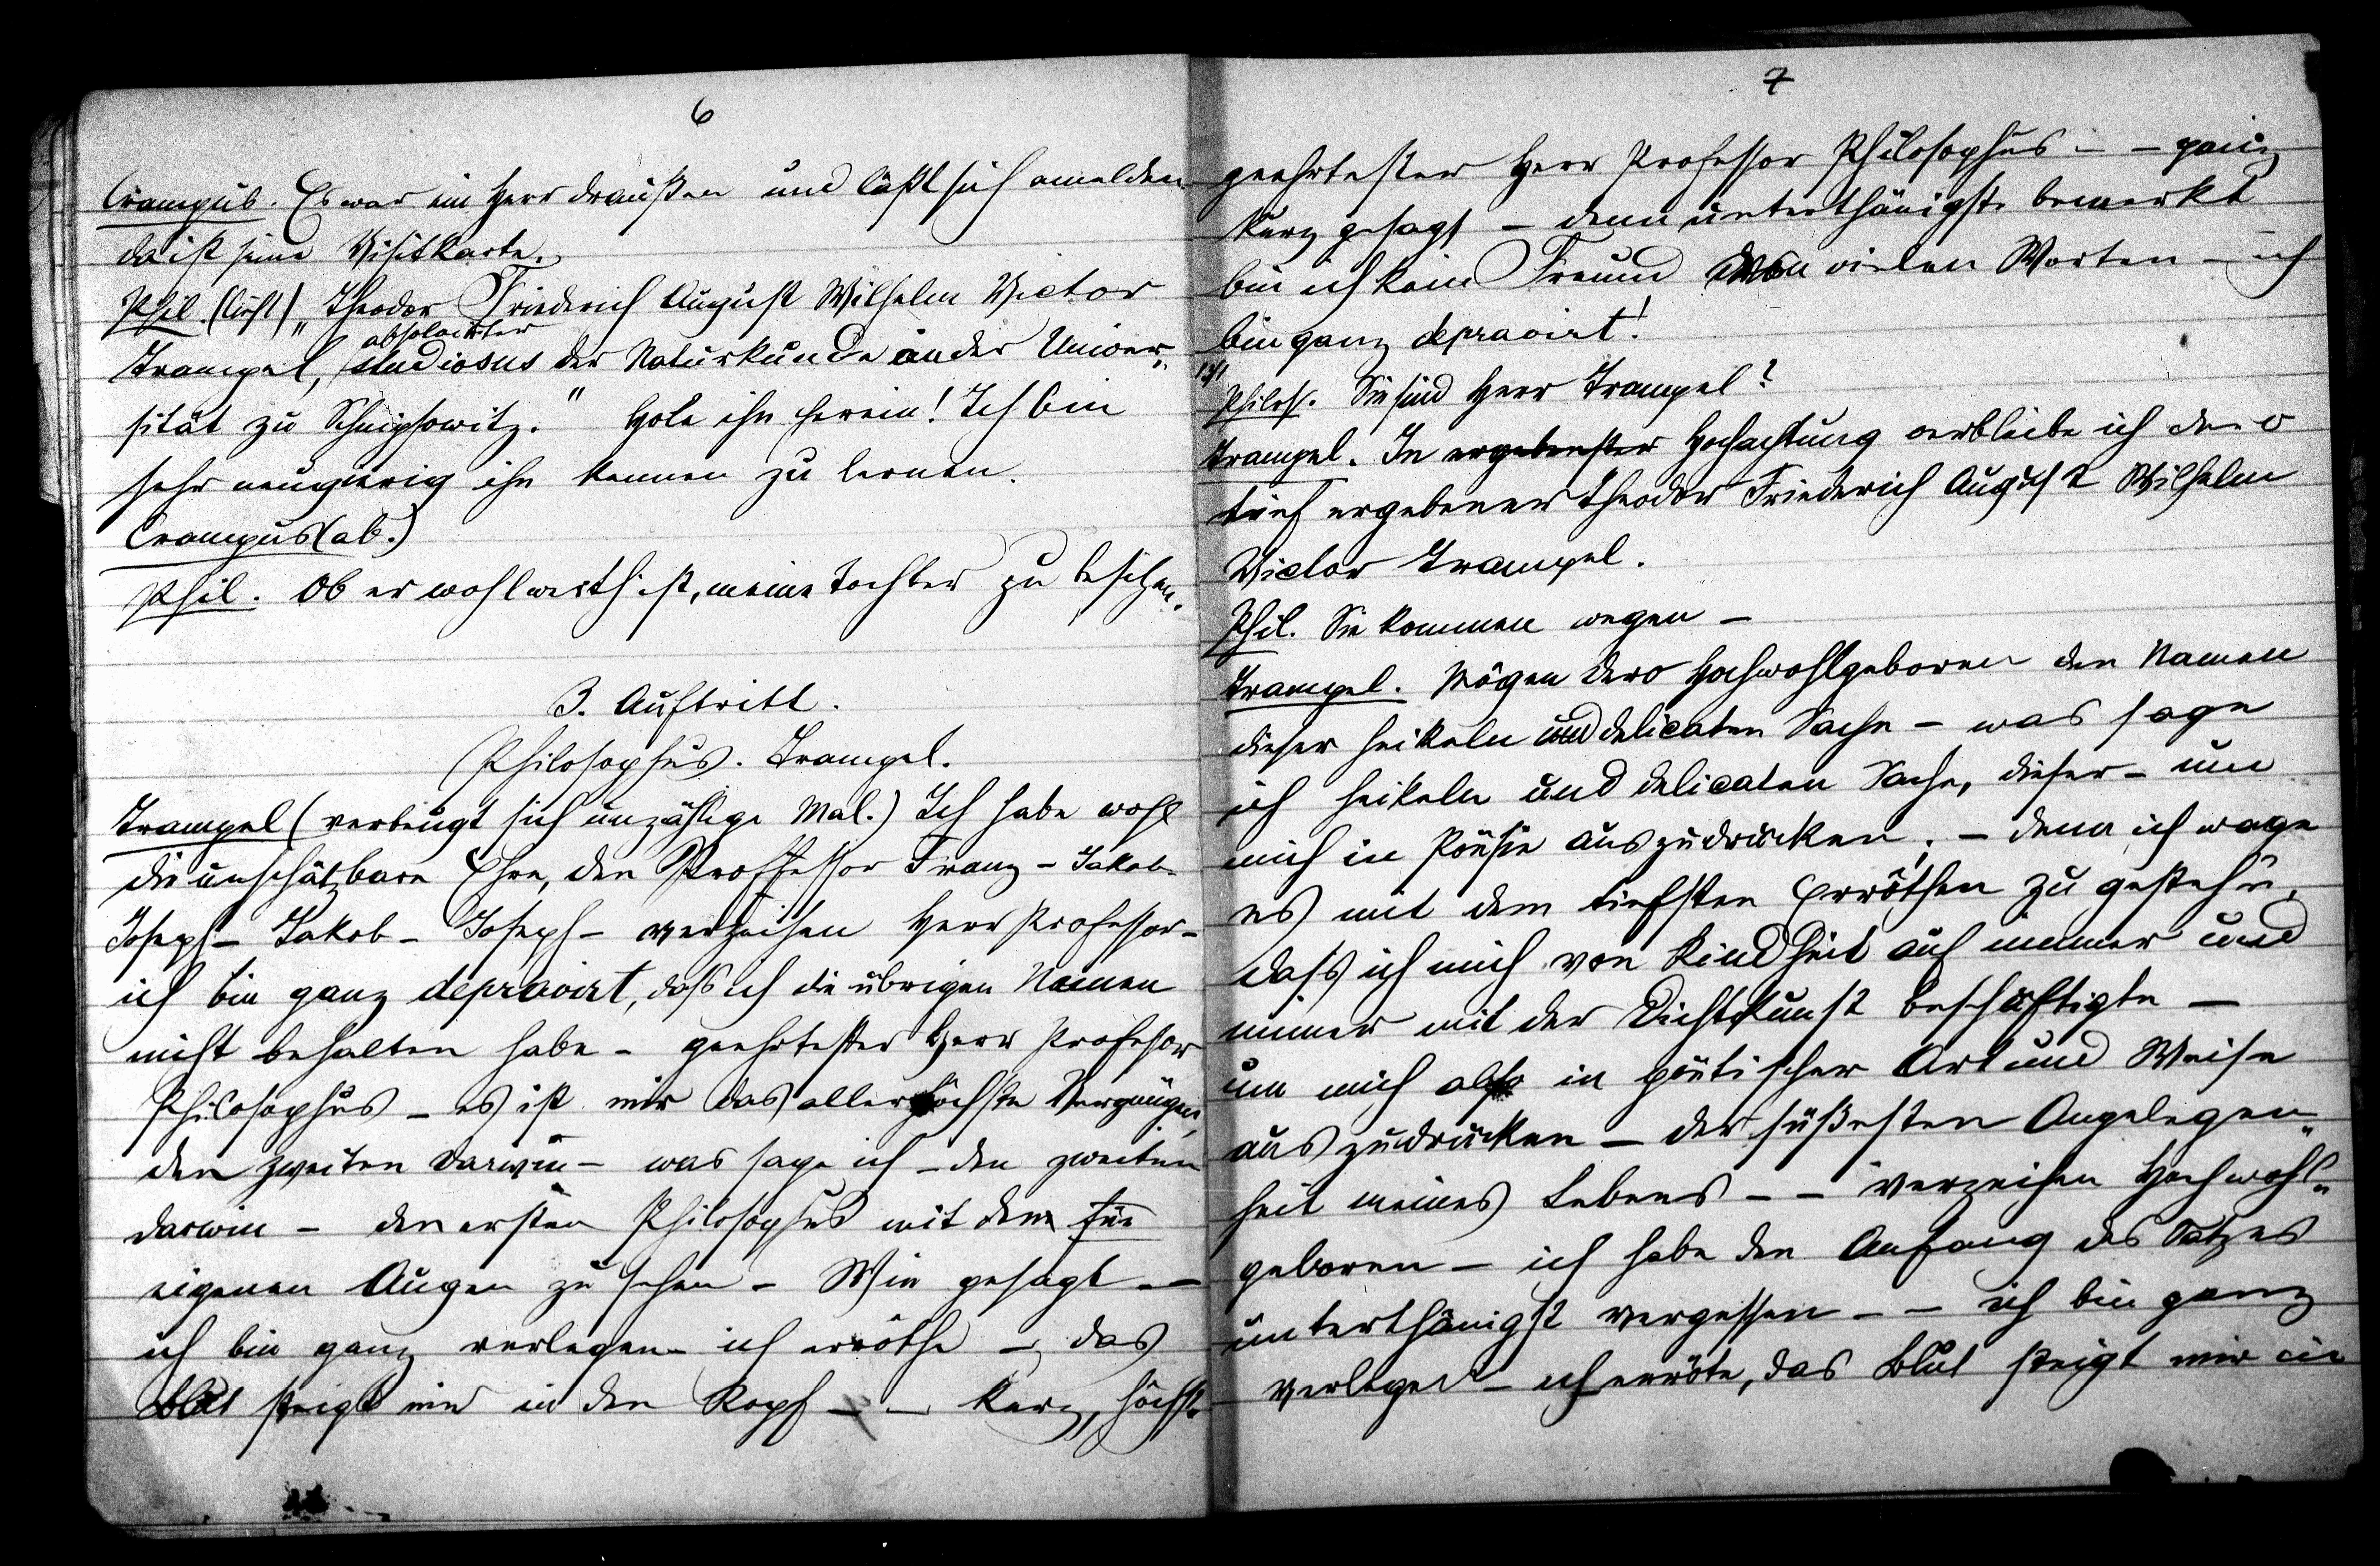 6
Crampus. Es war ein Herr draußen und läßt sich anmelden
da ist seine Visitkarte.
Phil. (liest) „Theodor Friedrich August Wilhelm Victor
absolvirter
Trampel, studiosus der Naturkunde an der Univer„
sität zu Schnipsowitz." Hole ihn herein! Ich bin
sehr neugierig ihn kennen zu lernen.
Crampus (ab.)
Phil. Ob er wohl werth ist, meine Tochter zu besitzen.
3. Auftritt.
Philosophus. Trampel.
Trampel (verbeugt sich unzählige Mal.) Ich habe wohl
die unschätzbare Ehre, den Proffessor Franz - Jakob-
Joseph - Jakob - Joseph - verzeihen Herr Professor -
ich bin ganz depravirt, daß ich die übrigen Namen
nicht behalten habe - geehrtester Herr Profesor
Philosophus - es ist mir das allerhöchste Vergnügen,
den zweiten Darwin - was sage ich - den zweiten
Darwin - den ersten Philosophus mit dem
eigenen Augen zu sehen - Wie gesagt - -
ich bin ganz verlegen - ich erröthe - das
Blut steigt mir in den Kopf - - kurz, höchst
7
geehrtester Herr Professor Philosophus - - ganz
kurz gesagt - denn unterthänigst bemerkt
bin ich kein Freund von vielen Worten - ich
bin ganz depravirt!
Philos. Sie sind Herr Trampel?
Trampel. In ergebenster Hochachtung verbleibe ich dero
tief ergebener Theodor Friedrich August Wilhelm
Victor Trampel.
Phil. Sie kommen wegen -
Trampel. Mögen Dero Hochwohlgeboren den Namen
dieser heikeln und delicaten Sache - was sage
ich heikeln und delicaten Sache, dieser - um
mich in Poësie auszudrücken, - denn ich wage
es mit dem tiefsten Erröthen zu gestehn,
dass ich mich von Kindheit auf immer und
immer mit der Dichtkunst beschäftigte -
um mich also in poëtischer Art und Weise
auszudrücken - der süßesten Angelegen„
heit meines Lebens - - verzeihen Hochwohl„
geboren - ich habe den Anfang des Satzes
unterthänigst vergessen - - ich bin ganz
verlegen - ich erröte, das Blut steigt mir in